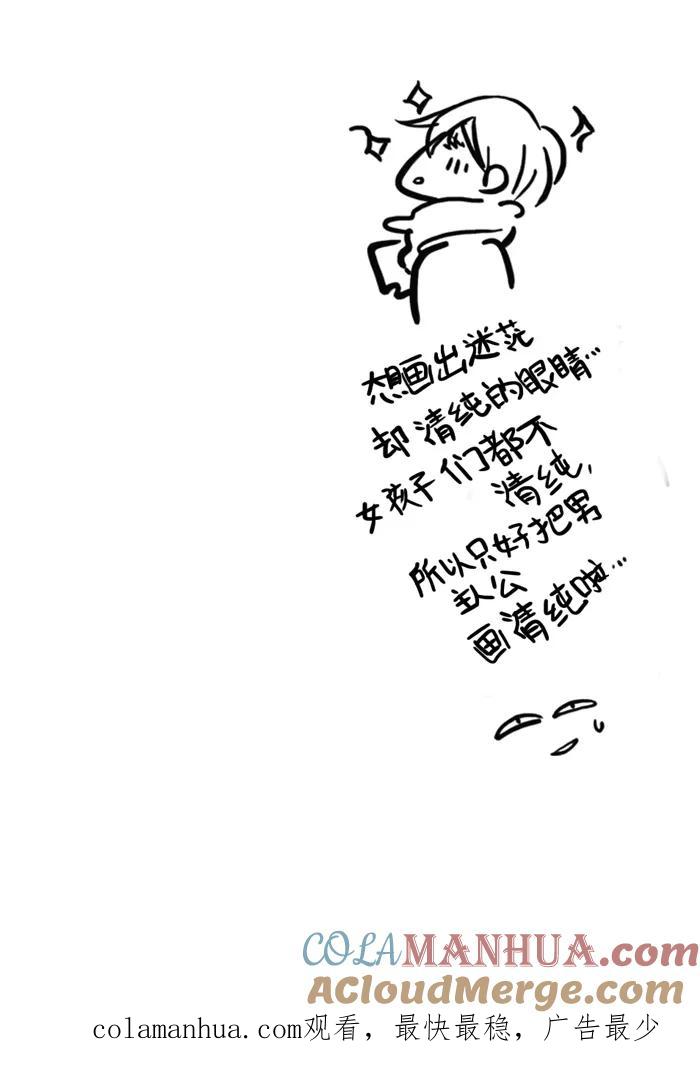 想画出迷茫
却清纯的眼睛…
女孩子们都不
清纯，
所以只好把男
主人公
画清纯啦…
COLAMANHUA.com
ACloudMerge.com
colamanhua.com观看，最快最稳，广告最少